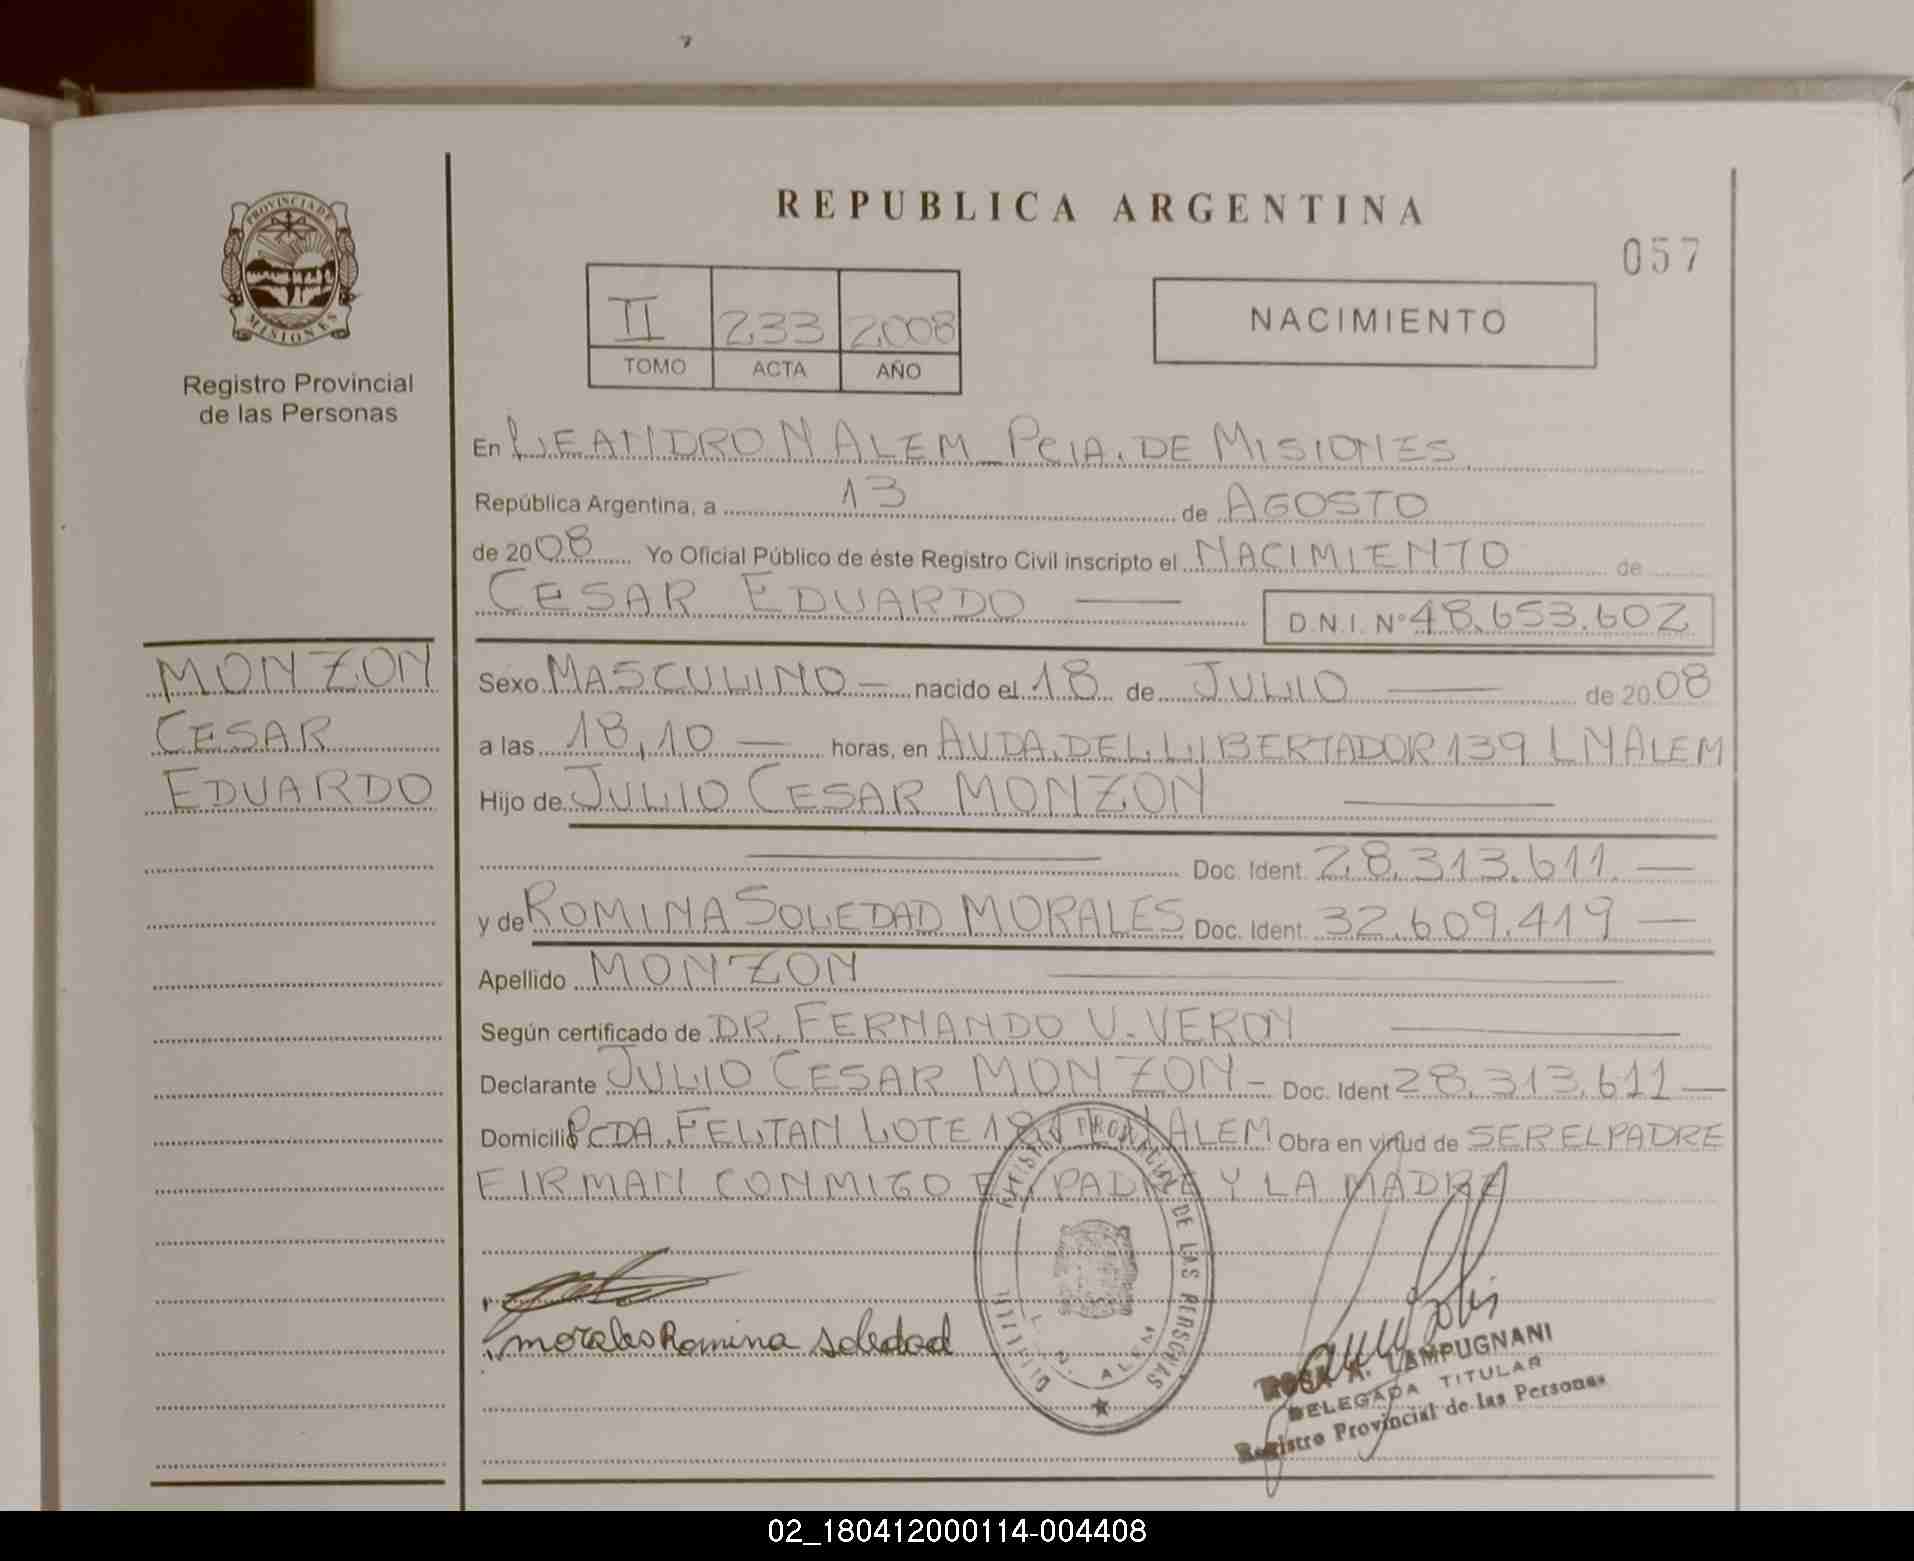 REPUBLICA ARGENTINA
057
PROVINCIA DE
MISIONES
Registro Provincial
de las Personas
II 233 2008
TOMO ACTA AÑO
NACIMIENTO
En LEANDRO N ALEM - Pcia. DE MISIONES
República Argentina, a 13 de AGOSTO
de 2008 Yo Oficial Público de éste Registro Civil inscripto el NACIMIENTO de
CESAR EDUARDO D.N.I. Nº 48.653.602
MONZON
CESAR
EDUARDO
Sexo MASCULINO - nacido el 18 de JULIO de 2008
a las 18,10 - horas, en AVDA. DEL LIBERTADOR 139 L N ALEM
Hijo de JULIO CESAR MONZON
Doc. Ident. 28.313.611 -
y de ROMINA SOLEDAD MORALES Doc. Ident. 32.609.419 -
Apellido MONZON
Según certificado de DR. FERNANDO V. VERON
Declarante JULIO CESAR MONZON - Doc. Ident 28.313.611 -
Domicilio PCDA. FELTAN LOTE ALEM Obra en virtud de SER EL PADRE
FIRMAN CONMIGO EL PADRE Y LA MADRE
morales Romina soledad
REGISTRO PROVINCIAL DE LAS PERSONAS
L. N. ALEM
ROSA A. LAMPUGNANI
DELEGADA TITULAR
Registro Provincial de las Personas
02_180412000114-004408